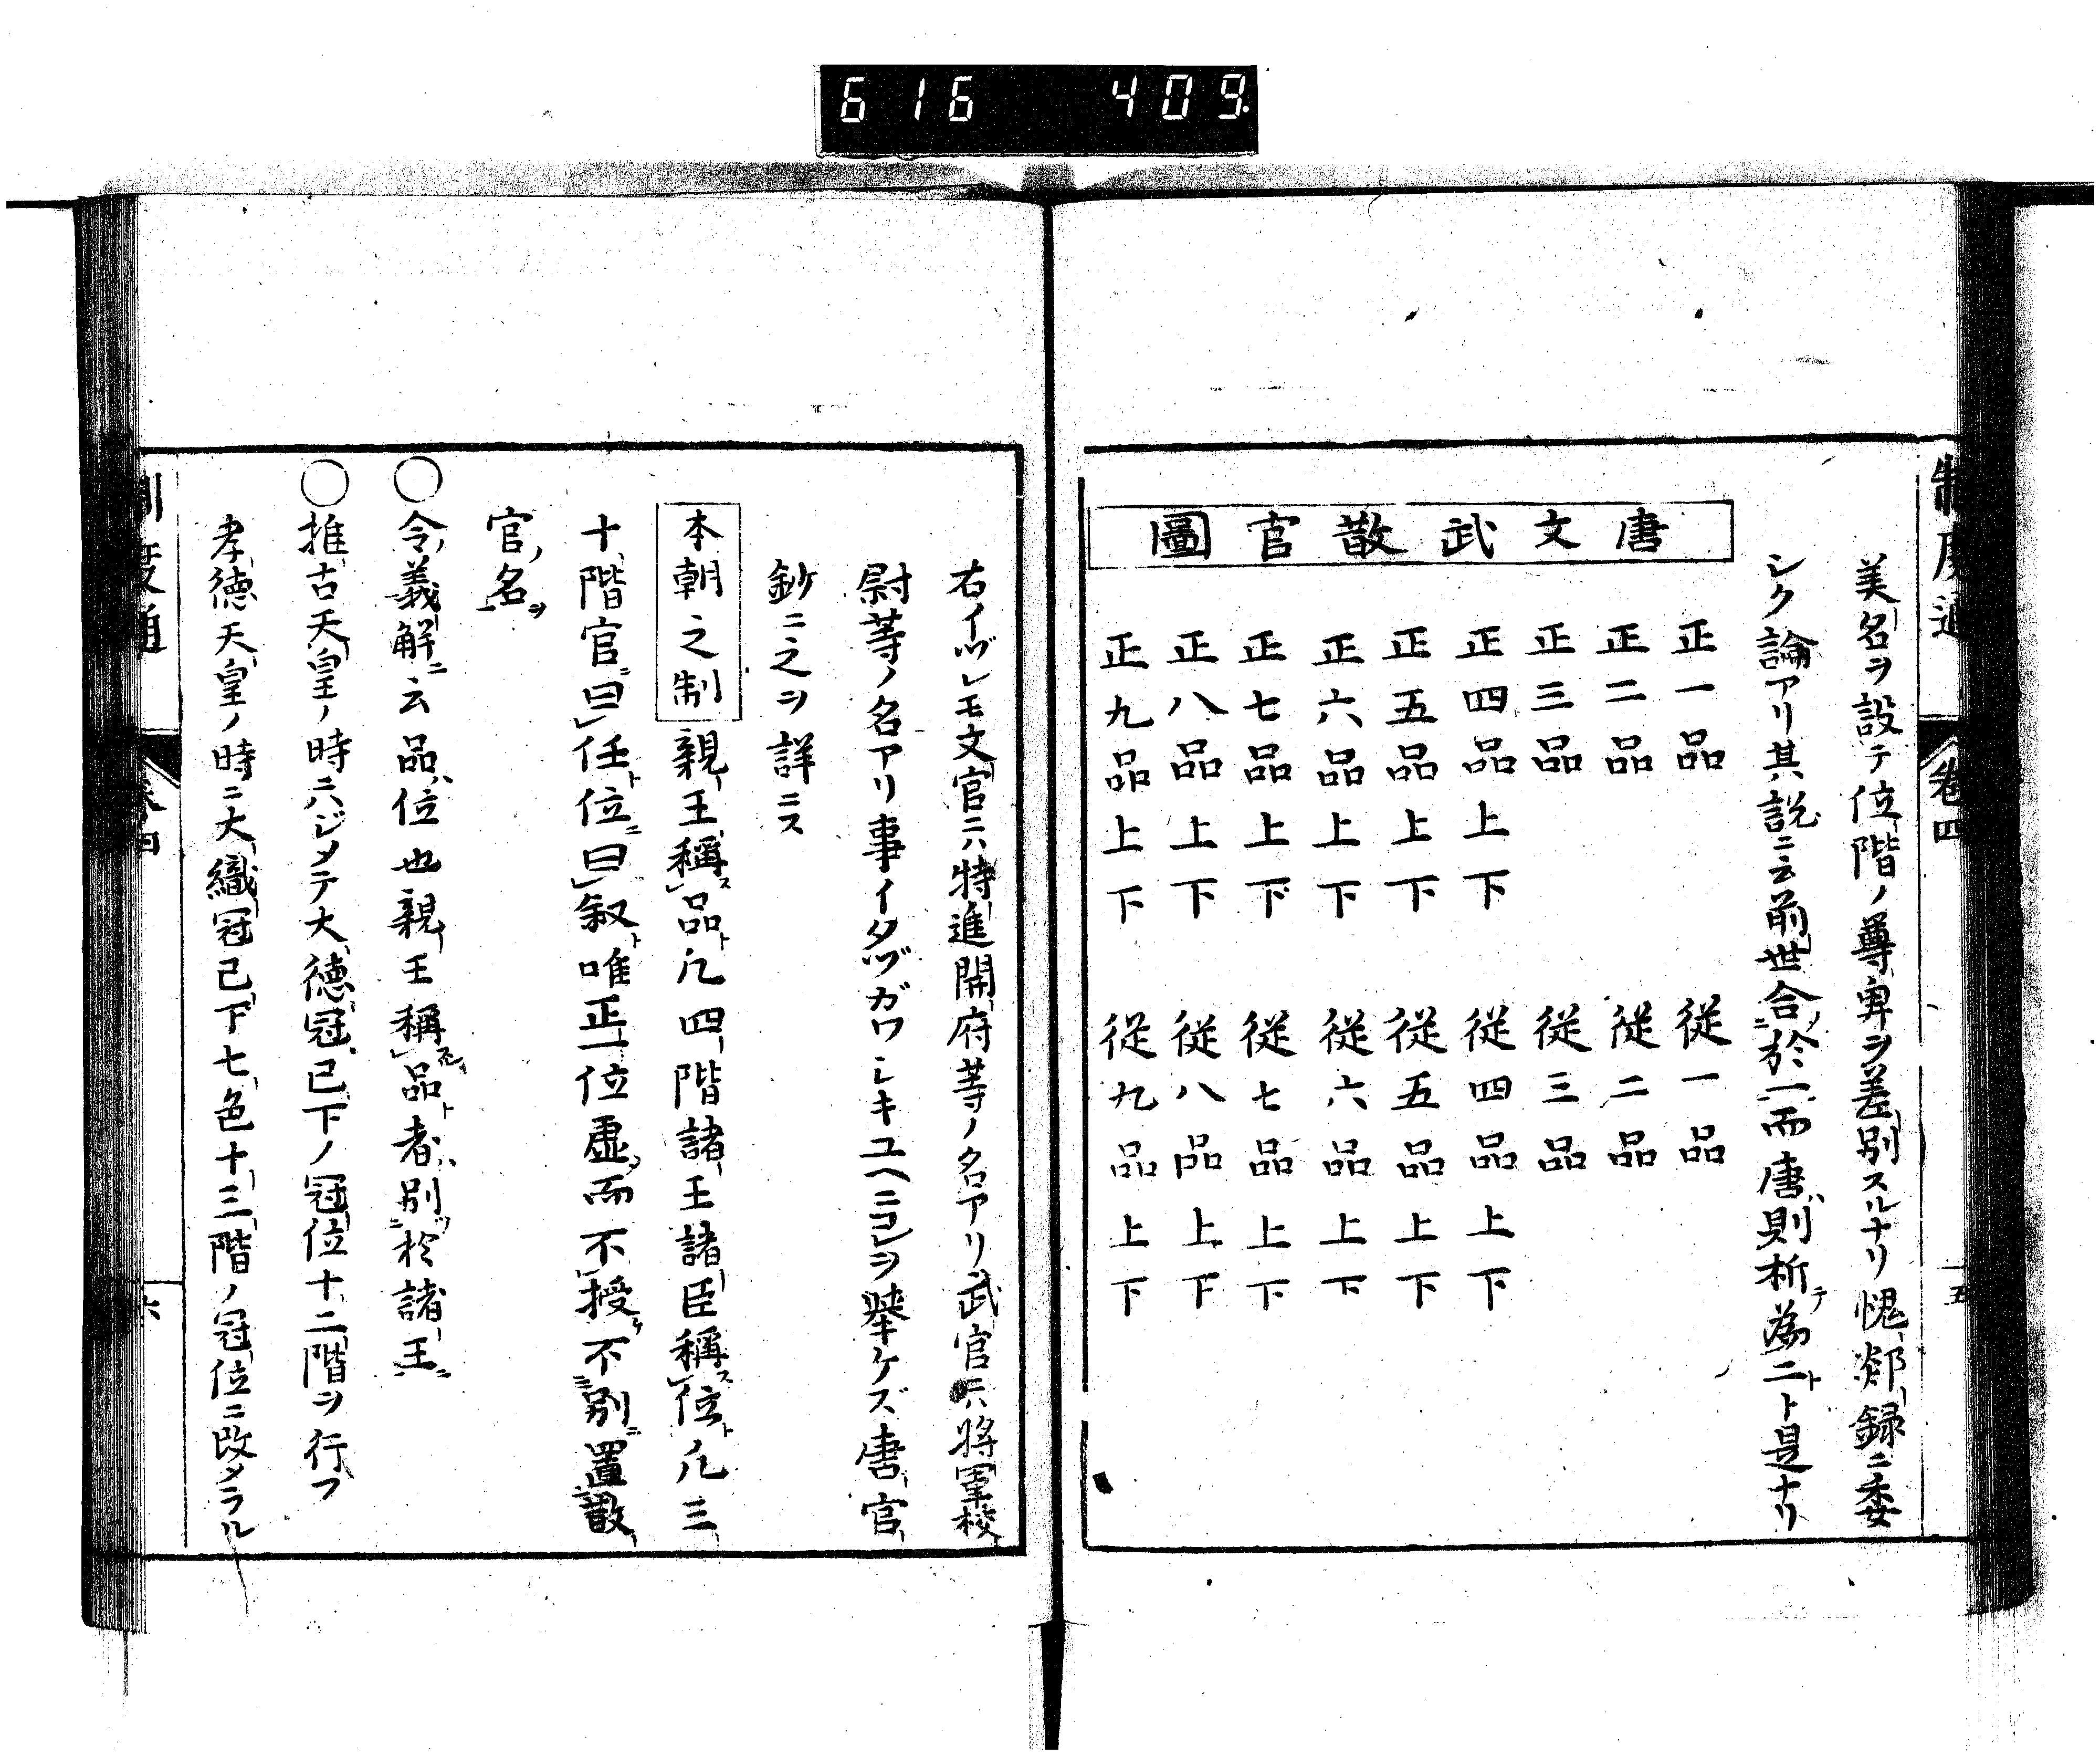 616 409
制度通 卷四 五
美名ヲ設テ位階ノ尊卑ヲ差別スルナリ愧郯録ニ委
シク論アリ其説ニ云前世合於一而唐則析為二ト是ナリ
唐文武散官圖
正一品 従一品
正二品 従二品
正三品 従三品
正四品上下 従四品上下
正五品上下 従五品上下
正六品上下 従六品上下
正七品上下 従七品上下
正八品上下 従八品上下
正九品上下 従九品上下
右イヅレモ文官ニハ特進開府等ノ名アリ武官ニハ將軍校
尉等ノ名アリ事イタヅガワシキユヘニコレヲ舉ケズ唐官
鈔ニ之ヲ詳ニス
本朝之制 親王稱品凡四階諸王諸臣稱位凡三
十階官曰任位曰叙唯正一位虚而不授不別置散
官名
〇令義解云品位也親王稱品者別於諸王
〇推古天皇ノ時ニハジメテ大徳冠已下ノ冠位十二階ヲ行フ
孝徳天皇ノ時ニ大織冠已下七色十三階ノ冠位ニ改メラル
制度通 卷四 六